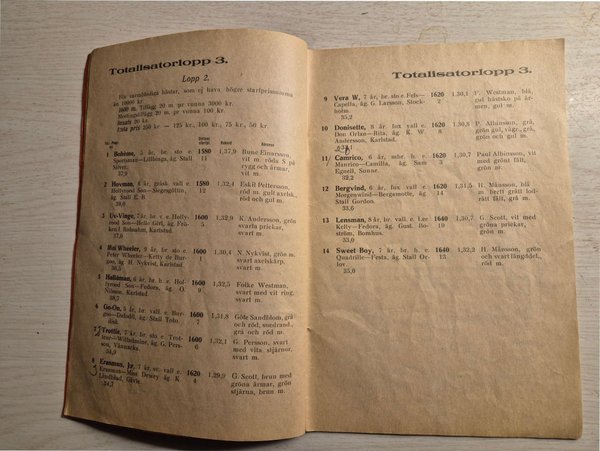 Totalisatorlopp 3.
Lopp 2.
För varmblodiga hästar, som ej hava högre startprissumma
än 10000 kr.
1600 m. Tillägg 20 m. pr vunna 3000 kr.
Medeltillägg 20 m. pr vunna 100 kr.
Insats 20 kr.
Lista pris 250 kr. — 125 kr., 100 kr., 75 kr., 50 kr.
1 Bohême, 5 år, br. sto e. 1580 1,37,9 Rune Einarsson,
Sportsman—Lillboga, äg. Stall 11 vit m. röda N. på
37,0 rygg och ärmar,
vit m.
2 Hovman, 4 år, vall. e. 1580 1,32,4 Eskil Petterson,
Hollyrood Son—Siegesgöttin, 12 röd m. gult axelsk.,
äg. Stall E. B. röd och gul m.
39,0
3 Uv-Vinge, 7 år, br. v. e. Holly- 1600 1,32,9 K. Andersson, grön
rood Son—Helle Girl, äg. Frö- 5 svarta prickar,
ken J. Bohnahm, Karlstad. svart m.
37,0
4 Hni Wheeler, 9 år, br. sto e. 1600 1,30,4 N. Nykvist, grön m.
Peter Wheeler—Kelly de Bur- 1 svart axelskärp,
goo, äg. H. Nykvist, Karlstad. svart m.
36,3
5 Halloman, 6 år, br. h. e. Hol- 1600 1,32,5 Folke Westman,
lyrood Son—Fedora, äg. O. 9 svart med vit ring,
Nilsson, Karlstad. svart m.
38,7
6 Go-On, 5 år, br. vall. e. Bur- 1600 1,31,8 Göte Sandblom, grå
goo—Dadodil, äg. Stall Toto. 2 och röd,
grå och röd m.
7 Trottie, 7 år, br. sto e. Trot- 1600 1,32,1 G. Persson, svart
teur—Wilhelmine, äg. G. Pers- 7 med vita stjärnor,
son, Vännacka. svart m.
34,9
8 Erasmus, jr, 7 år, sv. vall. e. 1620 1,29,9 G. Scott, brun med
Erasmus—Miss Dewey äg. K. 4 gröna ärmar, grön
Lindblad, Gävle. stjärna, brun m.
34,7
Totalisatorlopp 3.
9 Vera W, 7 år, br. sto e. Fels— 1620 1,30,1 F. Westman, blå,
Capella, äg. G. Larsson, Stock- 3 gul hästsko på är-
holm. men, gul m.
35,2
10 Donisette, 8 år, br. vall. e. 1620 1,30,5 P. Albinson, grå,
Don Orlan—Rita, äg. K. W. 8 grön gul, väge, grå,
Andersson, Karlstad. grön och gul m.
11 Camrico, 11 år, mbr. h. e. 1620 1,31,5 Paul Albinsson, vit
Maurico—Camilla, äg. Sam 3 med grönt fält,
Egnell, Sonne. grön m.
32,2
12 Bergvind, 6 år, br. vall. e. 1620 1,31,5 H. Månsson, blå
Morgenwind—Bergmotte, äg. 6 m. brett grått lod-
Stall Gordon. rätt fält, grå m.
33,6
13 Lensman, 8 år, br. vall. e. Lee 1620 1,30,7 G. Scott, vit med
Kelly—Fedora, äg. Gust. Bo- 10 gröna prickar,
ström, Bomhus. grön m.
33,0
14 Sweet Boy, 7 år, br. h. e. 1640 1,30,2 H. Månsson, grön
Quadrille—Festa, äg. Stall Or- 13 och svart långsådel.,
lov. röd m.
35,0